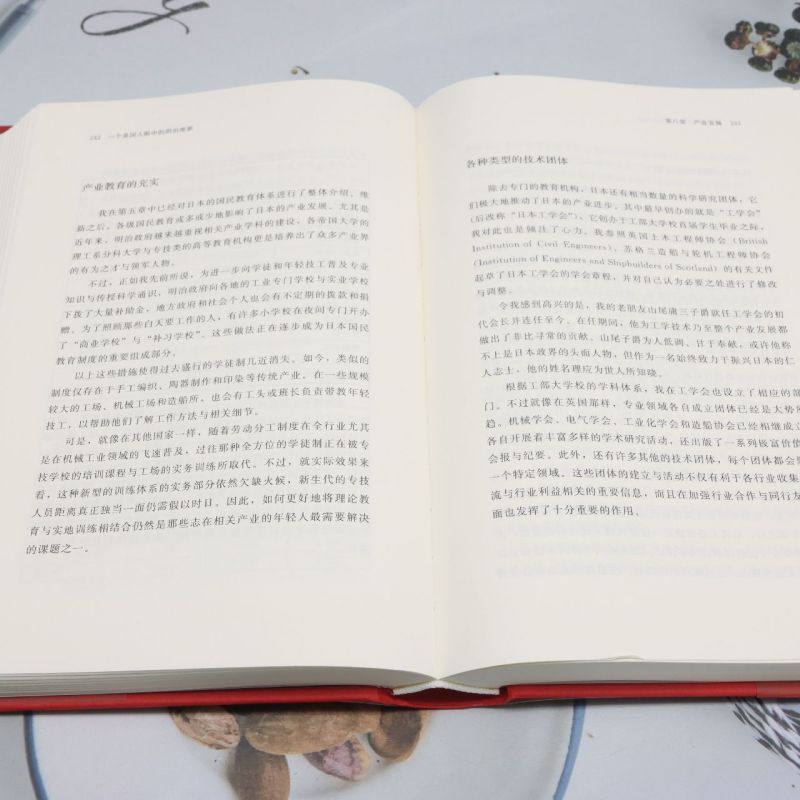 152 一个英国人眼中的明治维新
产业教育的充实
我在第五章中已经对日本的国民教育体系进行了整体介绍。维
新之后，各级国民教育或多或少地影响了日本的产业发展。尤其是
近年来，明治政府越来越重视相关产业学科的建设，各帝国大学的
理工系分科大学与专技类的高等教育机构更是培养出了众多产业界
的有为之才与领军人物。
不过，正如我先前所说，为进一步向学徒和年轻技工普及专业
知识与传授科学通识，明治政府向各地的工业专门学校与实业学校
下拨了大量补助金，地方政府和社会个人也会有不定期的拨款和捐
赠。为了照顾那些白天要工作的人，有许多小学校在夜间专门开办
了“商业学校”与“补习学校”。这些做法正在逐步成为日本国民
教育制度的重要组成部分。
以上这些措施使得过去盛行的学徒制几近消失。如今，类似的
制度仅存在于手工编织、陶器制作和印染等传统产业。在一些规模
较大的工场、机械工场和造船所，也会有工头或班长负责带教年轻
技工，以帮助他们了解工作方法与相关细节。
可是，就像在其他国家一样，随着劳动分工制度在全行业尤其
是在机械工业领域的飞速普及，过往那种全方位的学徒制正在被专
技学校的培训课程与工场的实务训练所取代。不过，就实际效果来
看，这种新型的训练体系的实务部分依然欠缺火候，新生代的专技
人员距离真正独当一面仍需假以时日。因此，如何更好地将理论教
育与实地训练相结合仍然是那些志在相关产业的年轻人最需要解决
的课题之一。
第八章 产业发展
各种类型的技术团体
除去专门的教育机构，日本还有相当数量的科学研究团体，它
们极大地推动了日本的产业进步。其中最早创办的就是“工学会”
（后改称“日本工学会”）。它创办于工部大学校首届学生毕业之际，
我对此也是倾注了心力。我参照英国土木工程师协会（British
Institution of Civil Engineers）、苏格兰造船与轮机工程师协会
（Institution of Engineers and Shipbuilders of Scotland）的有关文件
起草了日本工学会的学会章程，并对自己认为必要之处进行了修改
与调整。
令我感到高兴的是，我的老朋友山尾庸三子爵就任工学会的初
代会长并连任至今。在任期间，他为工学技术乃至整个产业发展都
做出了非比寻常的贡献。山尾子爵为人低调、甘于奉献，或许他称
不上是日本政界的头面人物，但作为一名始终致力于振兴日本的仁
人志士，他的姓名理应为世人所知晓。
根据工部大学校的学科体系，我在工学会也设立了相应的部
门。不过就像在英国那样，专业领域各自成立团体已经是大势所
趋。机械学会、电气学会、工业化学会和造船协会已经相继成立
各自开展着丰富多样的学术研究活动，还出版了一系列极富价值
会报与纪要。此外，还有许多其他的技术团体，每个团体都会
一个特定领域。这些团体的建立与活动不仅有利于各行业收集
流与行业利益相关的重要信息，而且在加强行业合作与同行友
面也发挥了十分重要的作用。